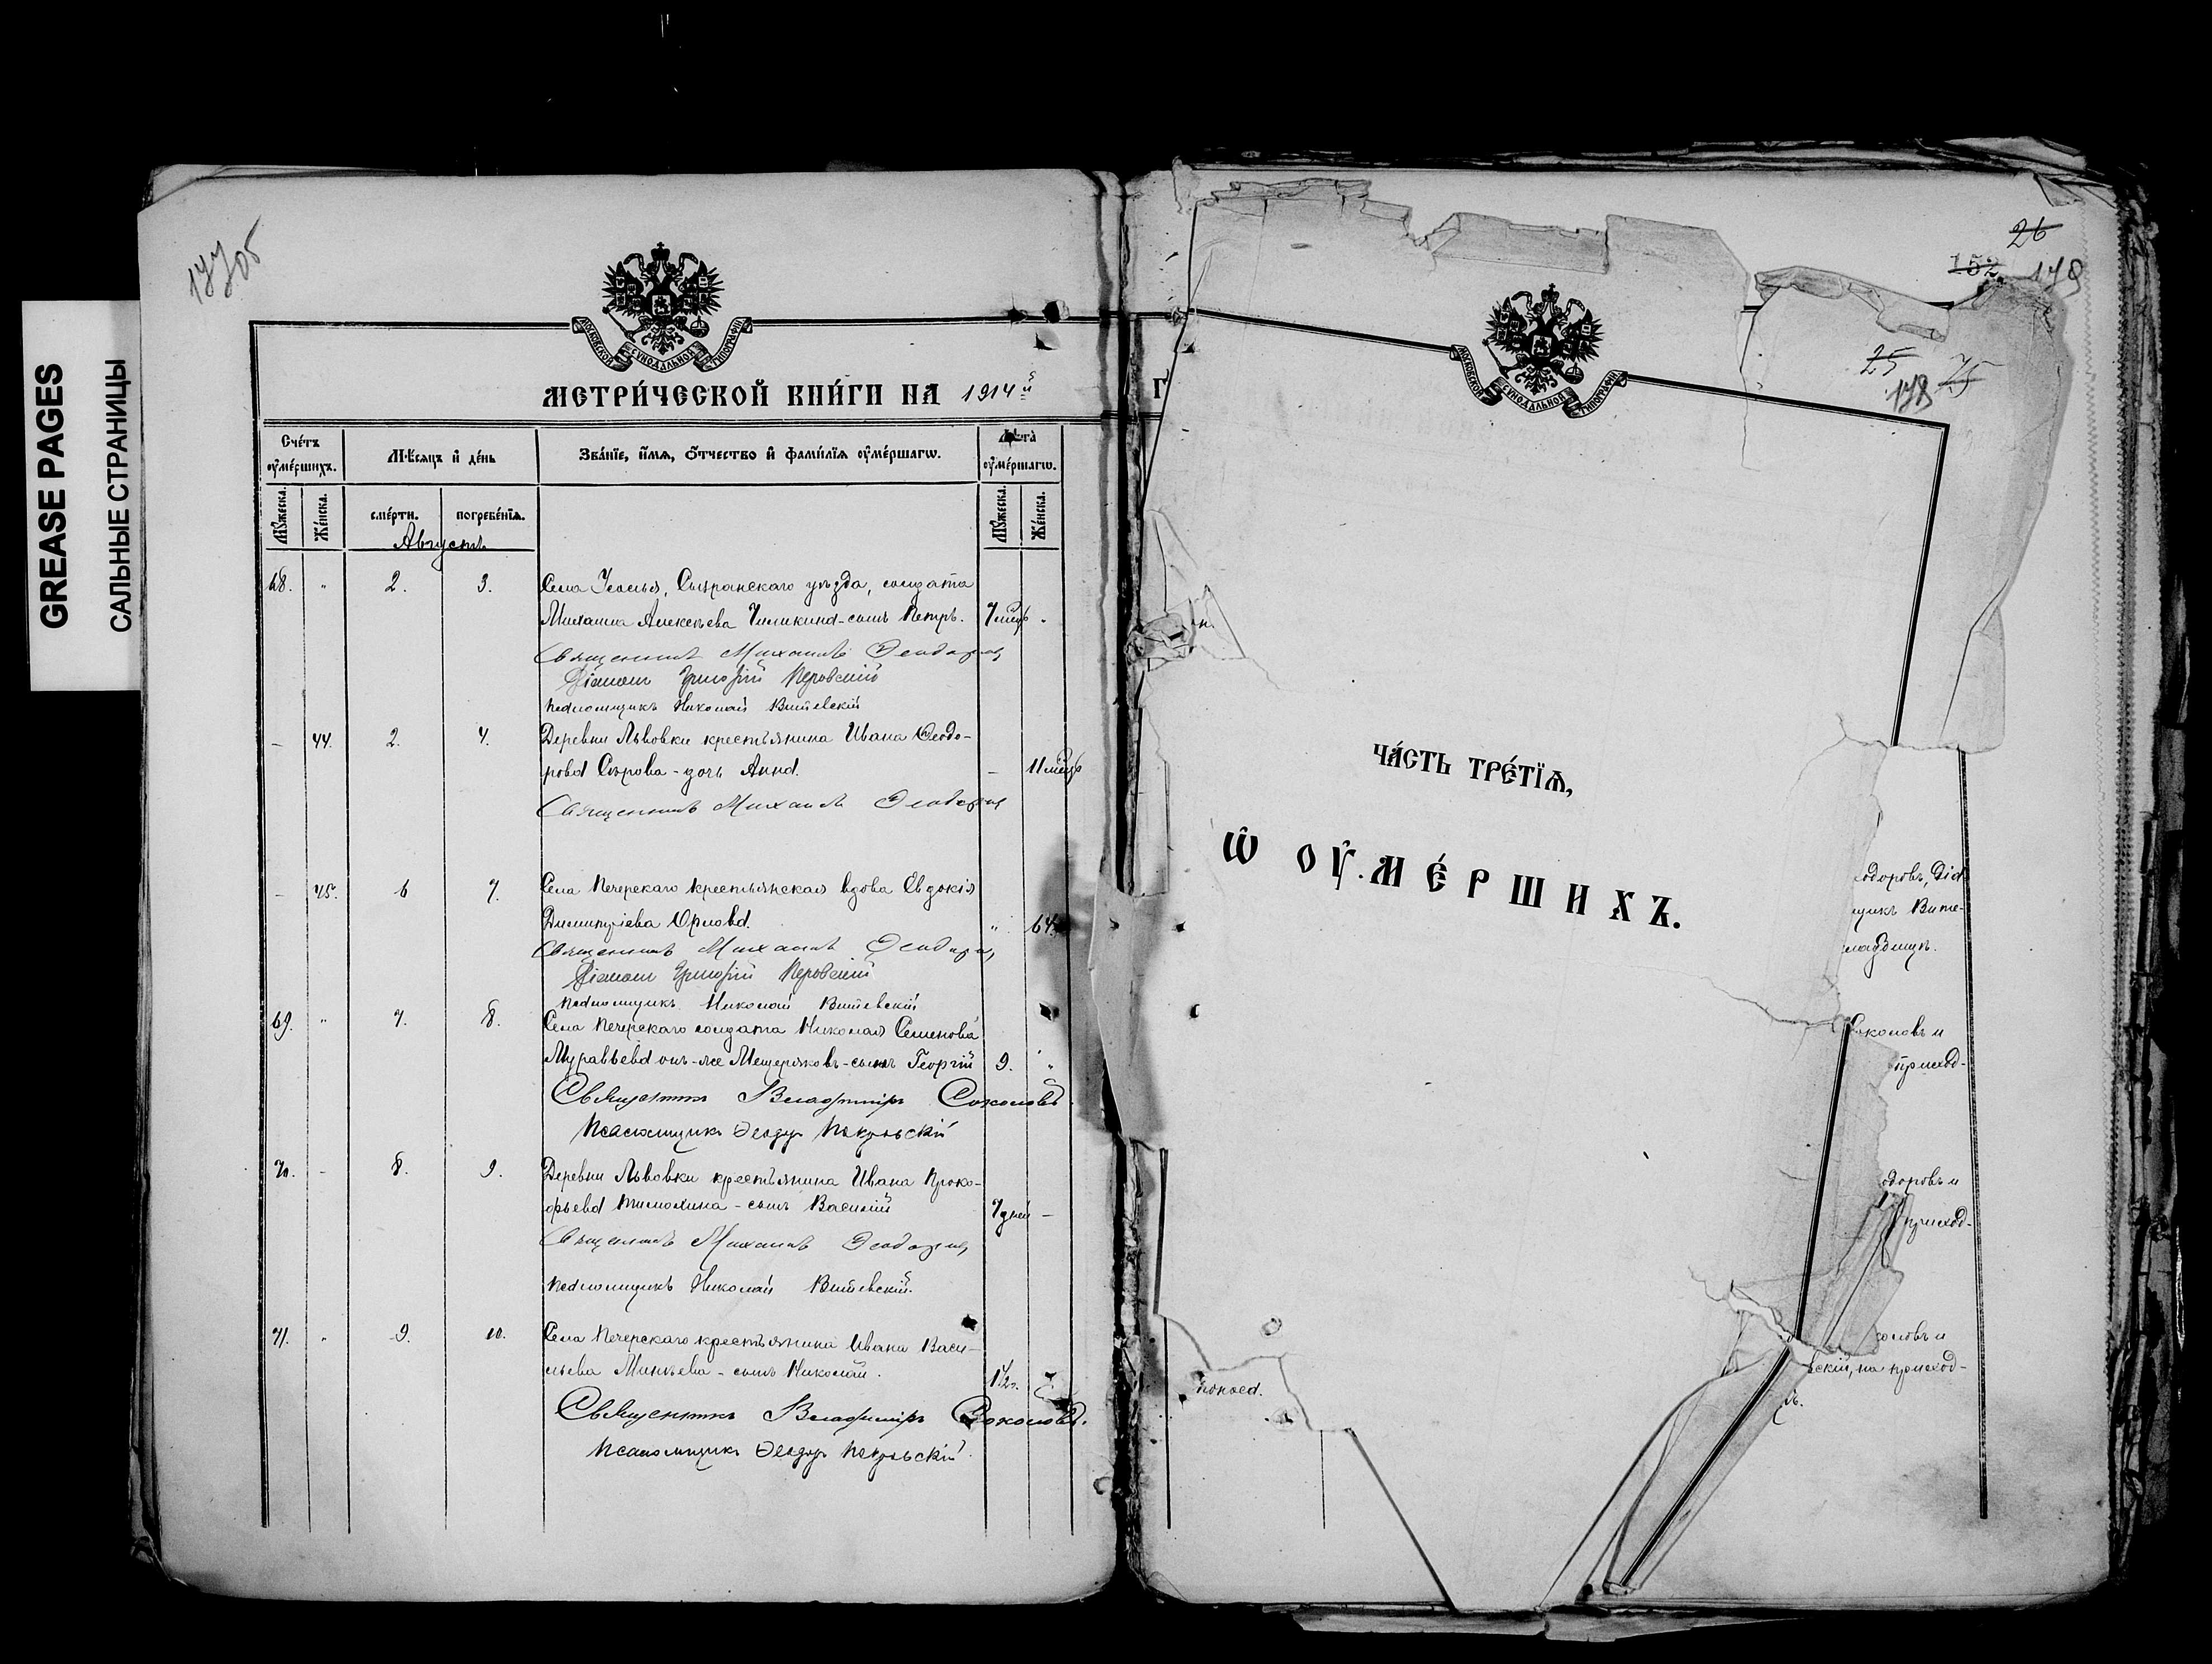 GREASE PAGES
САЛЬНЫЕ СТРАНИЦЫ
177об
МОСКОВСКОЙ СѴНОДАЛЬНОЙ ТИПОГРАФІИ
МЕТРИ́ЧЕСКОЙ КНИ́ГИ НА 1914й
Сче́тъ оумéршихъ.
Мѣ́сяцъ и де́нь
Зва́нїе, и́мя, о́тчество и фами́лїя оумéршагѡ.
Лѣта̀ оумéршагѡ.
Му́жеска.
Же́нска.
сме́рти.
погребе́нїя.
Му́жеска.
Же́нска.
Августъ
68. " 2. 3. Села Усолья, Сызранскаго уѣзда, солдата
Михаила Алексѣева Чиликина - сынъ Петръ. 7 мѣсъ "
Священникъ Михаилъ Ѳеодоровъ
Діаконъ Григорій Перовскій
Псаломщикъ Николай Витевскій
- 44. 2. 4. Деревни Львовки крестьянина Ивана Ѳеодо-
рова Сѣрова - дочь Анна. - 11 мѣсъ
Священникъ Михаилъ Ѳеодоровъ
- 45. 6 7. Села Печерскаго крестьянская вдова Евдокія
Димитріева Орлова. " 64.
Священникъ Михаилъ Ѳеодоровъ
Діаконъ Григорій Перовскій
Псаломщикъ Николай Витевскій
69. " 7. 8. Села Печерскаго солдата Николая Семенова
Муравьева онъ-же Мещеряковъ - сынъ Георгій 9. "
Священникъ Владиміръ Соколовъ.
Псаломщикъ Ѳеодоръ Покровскій
70. - 8. 9. Деревни Львовки крестьянина Ивана Проко-
фьева Тимохина - сынъ Василій 7 дней -
Священникъ Михаилъ Ѳеодоровъ
Псаломщикъ Николай Витевскій.
71. " 9. 10. Села Печерскаго крестьянина Ивана Васи-
льева Минѣева - сынъ Николай. 1 1/2 г.
Священникъ Владиміръ Соколовъ.
Псаломщикъ Ѳеодоръ Покровскій.
26
152
178
25
75
178
Г
МОСКОВСКОЙ СѴНОДАЛЬНОЙ ТИПОГРАФІИ
ЧА́СТЬ ТРЕ́ТЇѦ,
Ѡ ОУМЕ́РШИХЪ.
одоровъ, Діа
щикъ Вите-
ладбищѣ.
Соколовъ и
приход-
одоровъ и
приход-
коловъ и
вскій, на приход-
поноса.